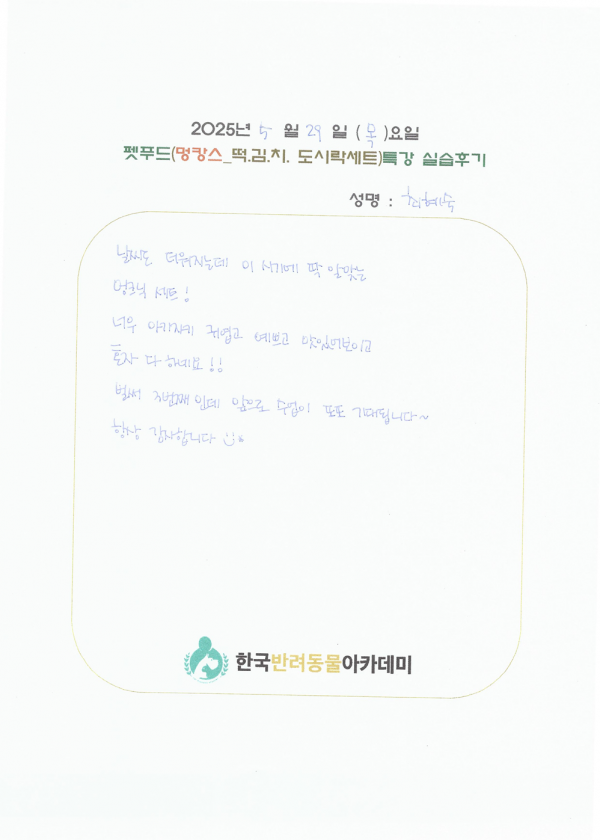 2025년 5 월 29 일 ( 목 )요일
펫푸드(멍캉스_떡.김.치. 도시락세트)특강 실습후기
성명 : 최혜숙
날씨도 더워지는데 이 시기에 딱 알맞는
멍크닉 세트!
너무 아기자기 귀엽고 예쁘고 맛있어보이고
혼자 다 하네요!!
벌써 3번째인데 앞으로 수업이 또또 기대됩니다~
항상 감사합니다
한국반려동물아카데미